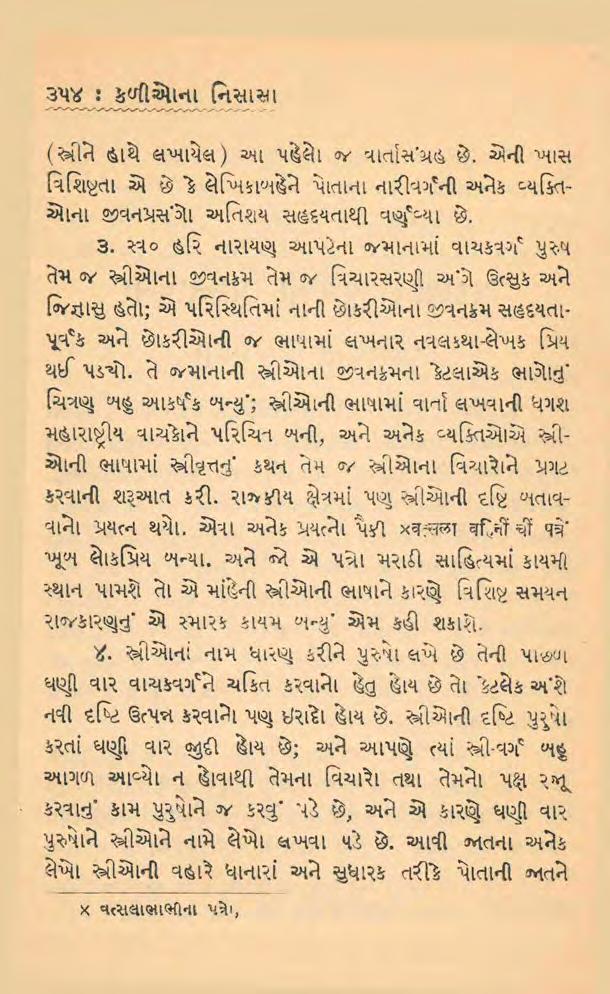 ૩૫૪ : કળીઓના નિસાસા
(સ્ત્રીને હાથે લખાયેલ) આ પહેલો જ વાર્તાસંગ્રહ છે. એની ખાસ
વિશિષ્ટતા એ છે કે લેખિકાબહેને પોતાના નારીવર્ગની અનેક વ્યક્તિ-
ઓના જીવનપ્રસંગો અતિશય સહૃદયતાથી વર્ણવ્યા છે.
૩. સ્વ૦ હરિ નારાયણ આપટેના જમાનામાં વાચકવર્ગ પુરુષ
તેમ જ સ્ત્રીઓના જીવનક્રમ તેમ જ વિચારસરણી અંગે ઉત્સુક અને
જિજ્ઞાસુ હતો; એ પરિસ્થિતિમાં નાની છોકરીઓના જીવનક્રમ સહૃદયતા-
પૂર્વક અને છોકરીઓની જ ભાષામાં લખનાર નવલકથા-લેખક પ્રિય
થઈ પડ્યો. તે જમાનાની સ્ત્રીઓના જીવનક્રમના કેટલાએક ભાગોનું
ચિત્રણ બહુ આકર્ષક બન્યું; સ્ત્રીઓની ભાષામાં વાર્તા લખવાની ધગશ
મહારાષ્ટ્રીય વાચકોને પરિચિત બની, અને અનેક વ્યક્તિઓએ સ્ત્રી-
ઓની ભાષામાં સ્ત્રીવૃત્તનું કથન તેમ જ સ્ત્રીઓના વિચારોને પ્રગટ
કરવાની શરૂઆત કરી. રાજકીય ક્ષેત્રમાં પણ સ્ત્રીઓની દૃષ્ટિ બતાવ-
વાનો પ્રયત્ન થયો. એવા અનેક પ્રયત્નો પૈકી ×वत्सला वहिनीं चीं पत्रें
ખૂબ લોકપ્રિય બન્યા. અને જો એ પત્રો મરાઠી સાહિત્યમાં કાયમી
સ્થાન પામશે તો એ માંહેની સ્ત્રીઓની ભાષાને કારણે વિશિષ્ટ સમયન
રાજકારણનું એ સ્મારક કાયમ બન્યું એમ કહી શકાશે.
૪. સ્ત્રીઓનાં નામ ધારણ કરીને પુરુષો લખે છે તેની પાછળ
ઘણી વાર વાચકવર્ગને ચકિત કરવાનો હેતુ હોય છે તો કેટલેક અંશે
નવી દૃષ્ટિ ઉત્પન્ન કરવાનો પણ ઇરાદો હોય છે. સ્ત્રીઓની દૃષ્ટિ પુરુષો
કરતાં ઘણી વાર જુદી હોય છે; અને આપણે ત્યાં સ્ત્રી-વર્ગ બહુ
આગળ આવ્યો ન હોવાથી તેમના વિચારો તથા તેમનો પક્ષ રજૂ
કરવાનું કામ પુરુષોને જ કરવું પડે છે, અને એ કારણે ઘણી વાર
પુરુષોને સ્ત્રીઓને નામે લેખો લખવા પડે છે. આવી જાતના અનેક
લેખો સ્ત્રીઓની વહારે ધાનારાં અને સુધારક તરીકે પોતાની જાતને
× વત્સલાભાભીના પત્રો,